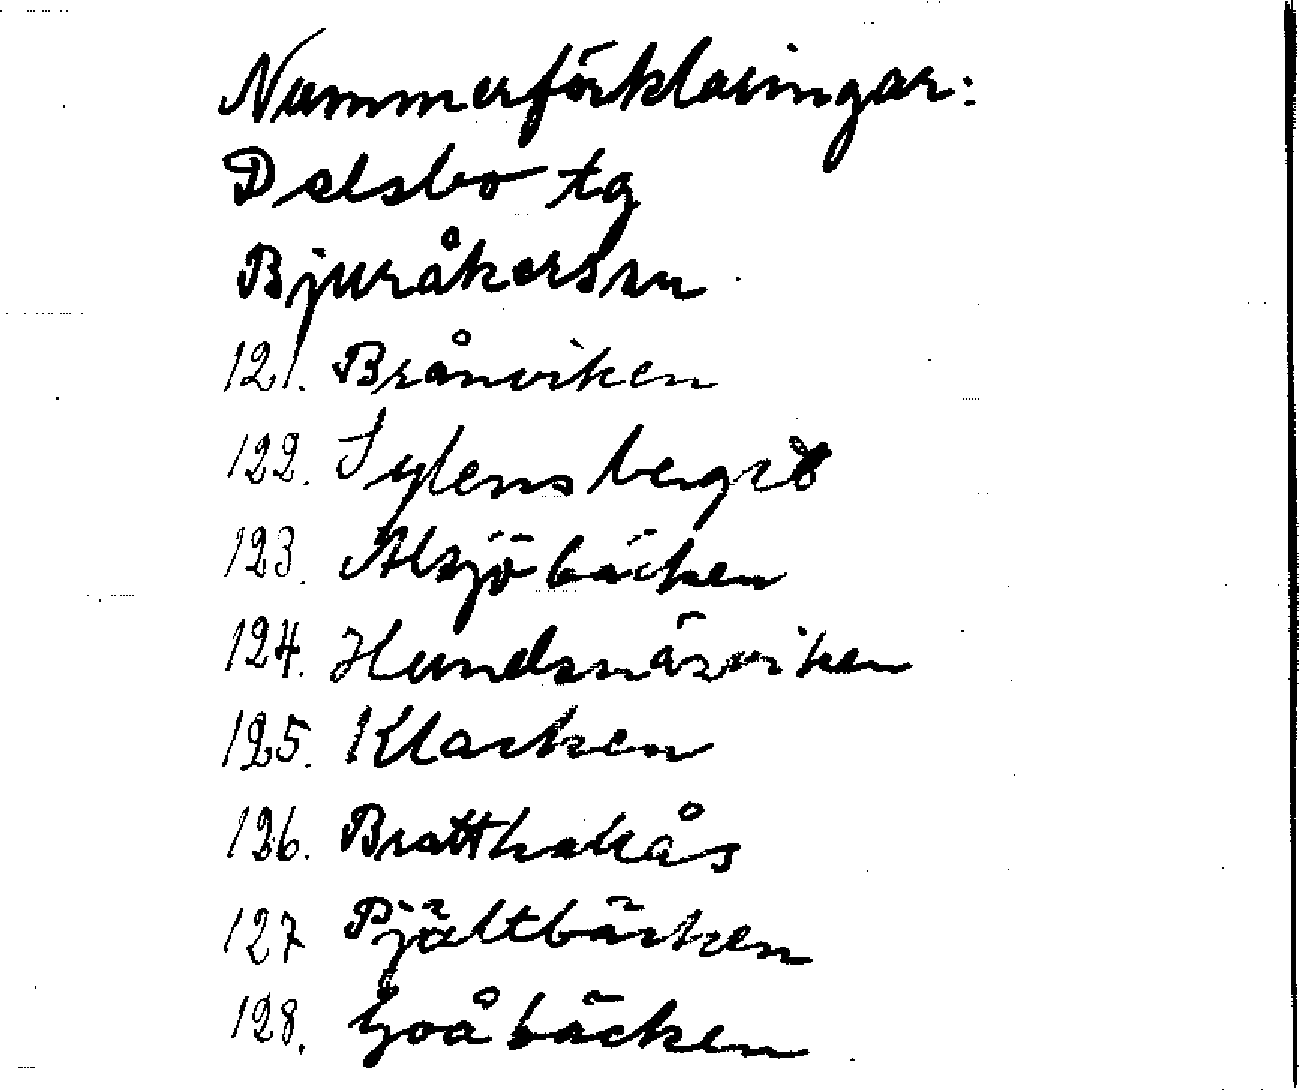 Nummerförklaringar:
Delsbo tg
Bjuråkers sn
121. Brånviken
122. Sylensberget
123. Alsjöbäcken
124. Hundsnäsviken
125. Klacken
126. Bratthakås
127 Pjältbäcken
128. Goåbäcken